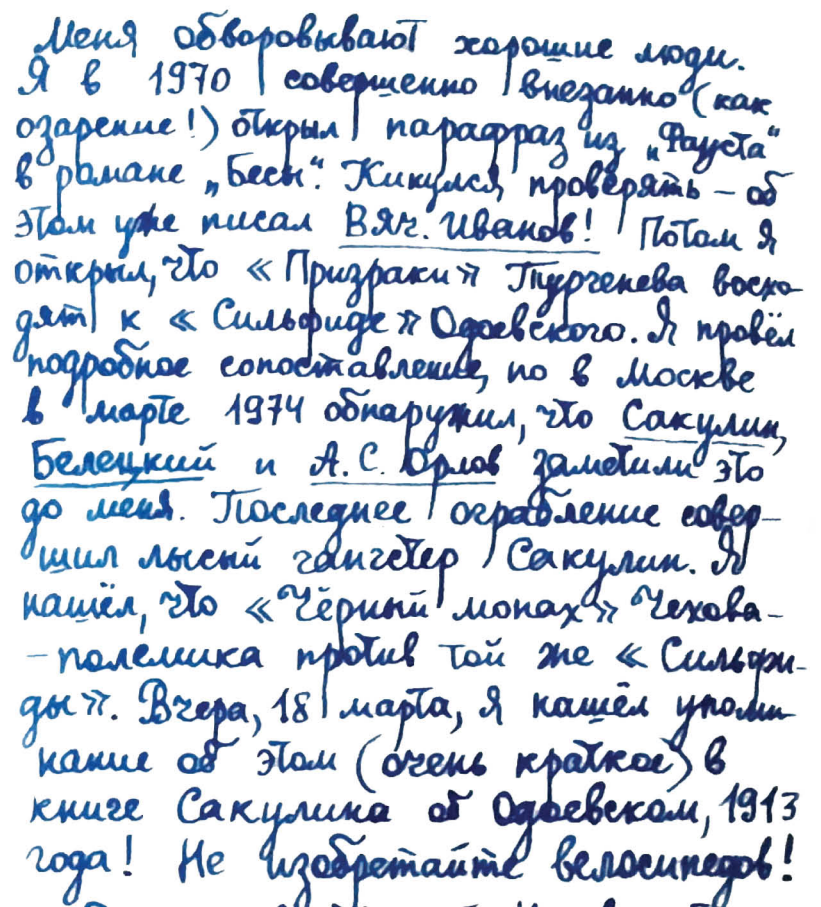 Меня обворовывают хорошие люди.
Я в 1970 совершенно внезапно (как
озарение!) открыл парафраз из „Фауста“
в романе „Бесы“. Кинулся проверять – об
этом уже писал Вяч. Иванов! Потом я
открыл, что «Призраки» Тургенева восхо-
дят к «Сильфиде» Одоевского. Я провёл
подробное сопоставление, но в Москве
в марте 1974 обнаружил, что Сакулин,
Белецкий и А.С. Орлов заметили это
до меня. Последнее ограбление совер-
шил лысый гангстер Сакулин. Я
нашёл, что «Чёрный монах» Чехова-
-полемика против той же «Сильфи-
ды». Вчера, 18 марта, я нашёл упоми-
нание об этом (очень краткое) в
книге Сакулина об Одоевском, 1913
года! Не изобретайте велосипедов!